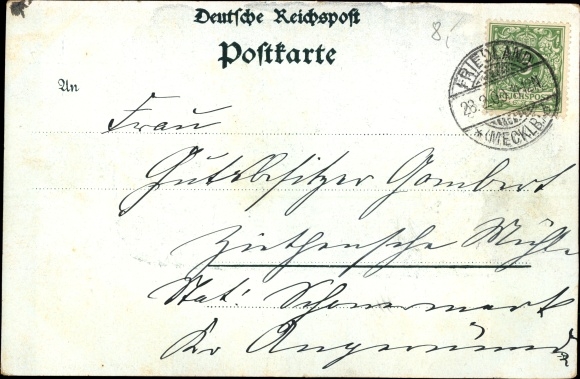 Deutsche Reichspost
8/
Postkarte
An
FRIEDLAND
REICHSPOST
(MECKLB.)
Frau
Gutsbesitzer Gombert
Ziethensche Mühle
Stat: Schönermark
Kr Angermünde